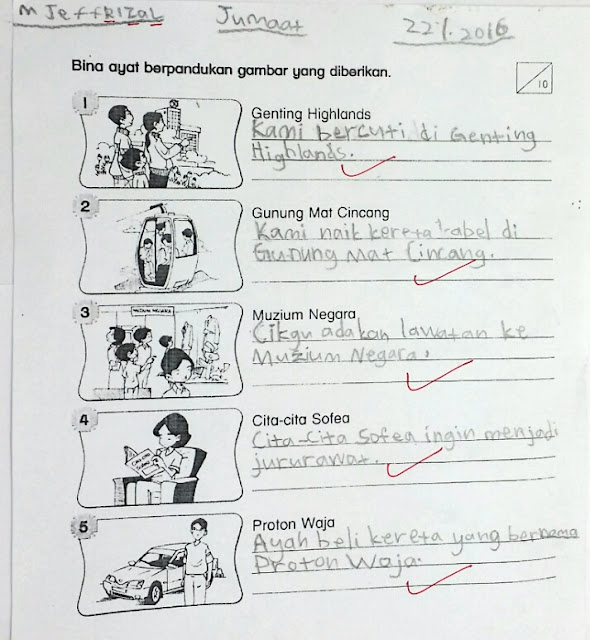 M JeffRIZAL Jumaat 22.1.2016
Bina ayat berpandukan gambar yang diberikan.
10
1
Genting Highlands
Kami bercuti di Genting
Highlands.
2
Gunung Mat Cincang
Kami naik kereta kabel di
Gunung Mat Cincang.
3
MUZIUM NEGARA
Muzium Negara
Cikgu adakan lawatan ke
Muzium Negara.
4
Cita-cita Sofea
Cita-Cita Sofea ingin menjadi
jururawat.
5
Proton Waja
Ayah beli kereta yang bernama
Proton Waja.